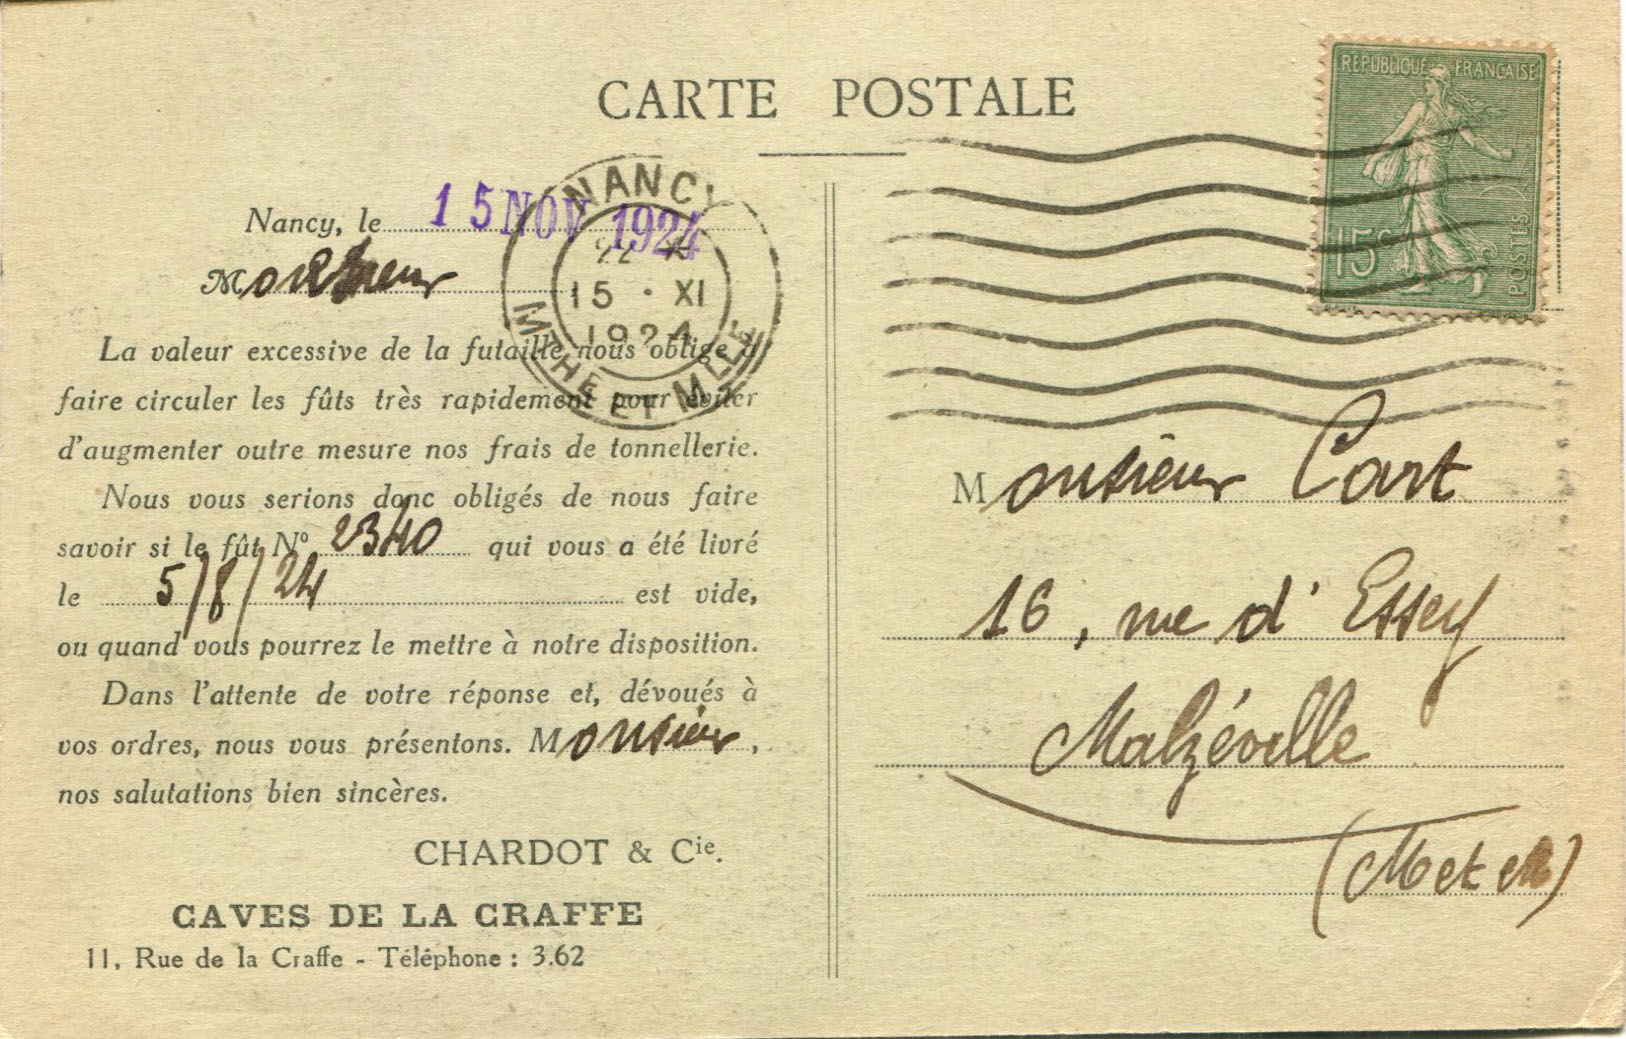 CARTE POSTALE
RÉPUBLIQUE FRANÇAISE
15c
POSTES
NANCY
15 · XI
1924
MTHE ET MLLE
Nancy, le 15 NOV 1924
Monsieur
La valeur excessive de la futaille nous oblige à
faire circuler les fûts très rapidement pour éviter
d'augmenter outre mesure nos frais de tonnellerie.
Nous vous serions donc obligés de nous faire
savoir si le fût No 2340 qui vous a été livré
le 5/8/24 est vide,
ou quand vous pourrez le mettre à notre disposition.
Dans l'attente de votre réponse et, dévoués à
vos ordres, nous vous présentons. Monsieur,
nos salutations bien sincères.
CHARDOT & Cie.
CAVES DE LA CRAFFE
11, Rue de la Craffe - Téléphone : 3.62
Monsieur Cart
16, rue d'Essey
Malzéville
(Met M)